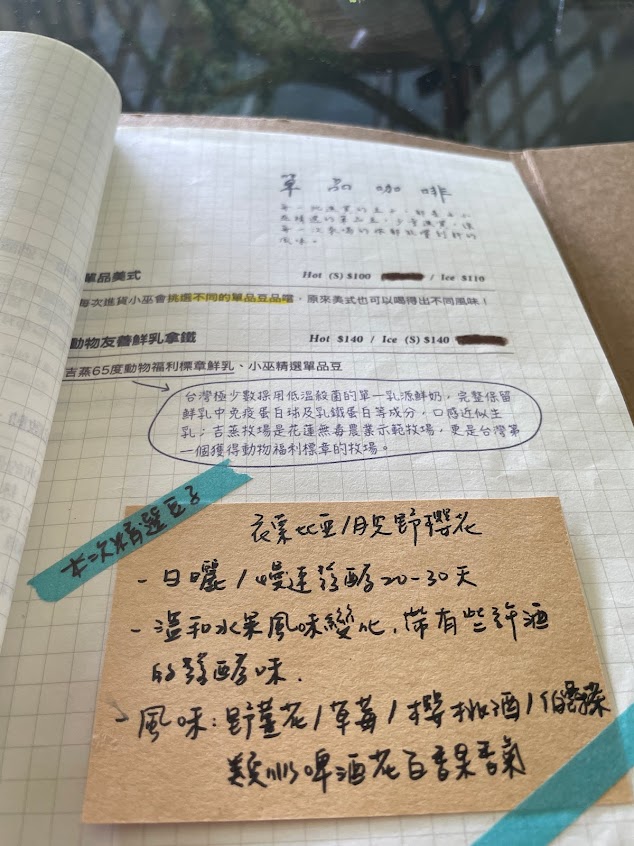 單品咖啡
每一批進貨的豆子，都是小小
每一次來喝的你都能嚐到新的
風味。
單品美式 Hot (S) $100 / Ice $110
每次進貨小巫會挑選不同的單品豆品嚐，原來美式也可以喝得出不同風味！
動物友善鮮乳拿鐵 Hot $140 / Ice (S) $140
吉蒸65度動物福利標章鮮乳、小巫精選單品豆
台灣極少數採用低溫殺菌的單一乳源鮮奶，完整保留
鮮乳中免疫蛋白球及乳鐵蛋白等成分，口感近似生
乳；吉蒸牧場是花蓮無毒農業示範牧場，更是台灣第
一個獲得動物福利標章的牧場。
本次精選豆子
衣索比亞/野櫻花
- 日曬/慢速發酵20-30天
- 溫和水果風味變化，帶有些許酒
的發酵味.
風味: 野薑花/草莓/櫻桃酒/伯爵茶
類似啤酒花百香果香氣